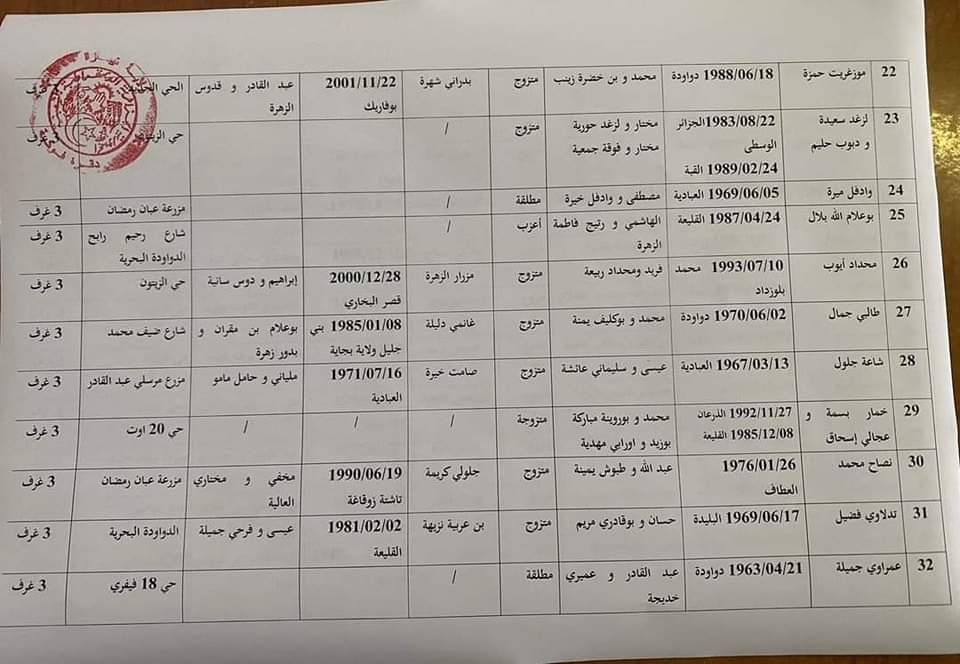 22 موزغريت حمزة 1988/06/18 دواودة محمد و بن خضرة زينب متزوج بدراني شهرة 2001/11/22 عبد القادر و قدوس الحي
بوفاريك الزهرة
23 لزغد سعيدة 1983/08/22الجزائر مختار و لزغد حورية متزوج / حي
و دبوب حليم الوسطى مختار و فوقة جمعية
1989/02/24 القبة
24 وادفل ميرة 1969/06/05 العبادية مصطفى و وادفل خيرة مطلقة / مزرعة عبان رمضان 3 غرف
25 بوعلام الله بلال 1987/04/24 القليعة الهاشمي و رتيح فاطمة أعزب / شارع رحيم رابح 3 غرف
الزهرة الدواودة البحرية
26 محداد أيوب 1993/07/10 محمد فريد ومحداد ربيعة متزوج مزرار الزهرة 2000/12/28 إبراهيم و دوس سانية حي الزيتون 3 غرف
بلوزداد قصر البخاري
27 طالبي جمال 1970/06/02 دواودة محمد و بوكليف يمنة متزوج غانمي دليلة 1985/01/08 بني بوعلام بن مقران و شارع ضيف محمد 3 غرف
جليل ولاية بجاية بدور زهرة
28 شاعة جلول 1967/03/13 العبادية عيسى و سليماني عائشة متزوج صامت خيرة 1971/07/16 ملياني و حامل مامو مزرع مرسلي عبد القادر 3 غرف
العبادية
29 خمار بسمة و 1992/11/27 الذرعان محمد و بوروينة مباركة متزوجة / / / حي 20 اوت 3 غرف
عجالي إسحاق 1985/12/08 القليعة بوزيد و اورابي مهدية
30 نصاح محمد 1976/01/26 عبد الله و طبوش يمينة متزوج جلولي كريمة 1990/06/19 مخفي و مختاري مزرعة عبان رمضان 3 غرف
العطاف تاشتة زوقاغة العالية
31 تدلاوي فضيل 1969/06/17 البليدة حسان و بوقادري مريم متزوج بن عربية نزيهة 1981/02/02 عيسى و فرحي جميلة الدواودة البحرية 3 غرف
القليعة
32 عمراوي جميلة 1963/04/21 دواودة عبد القادر و عميري مطلقة / حي 18 فيفري 3 غرف
خديجة